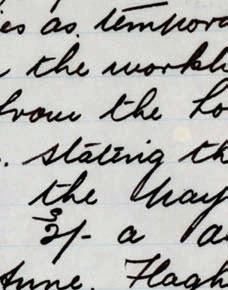 es as tempora
the workh
from the ho
. stating th
the pay
3/- a a
June. Flagh